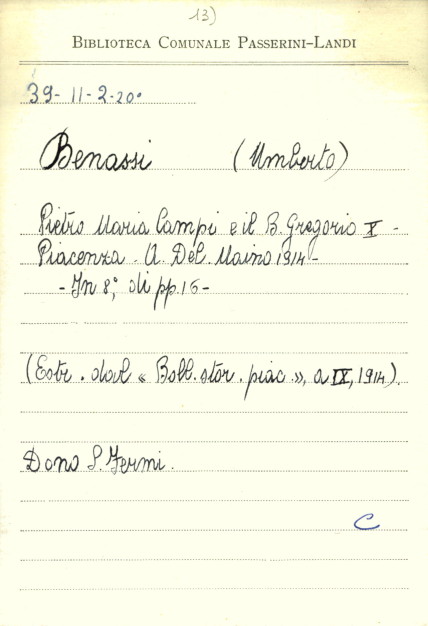 13)
BIBLIOTECA COMUNALE PASSERINI-LANDI
39-11-2-20°
Benassi (Umberto)
Pietro Maria Campi e il B. Gregorio X -
Piacenza - A. Del. Maino 1914 -
- In 8°, di pp. 16 -
(Estr. dal « Boll. stor. piac. », a IX, 1914).
Dono S. Fermi.
C